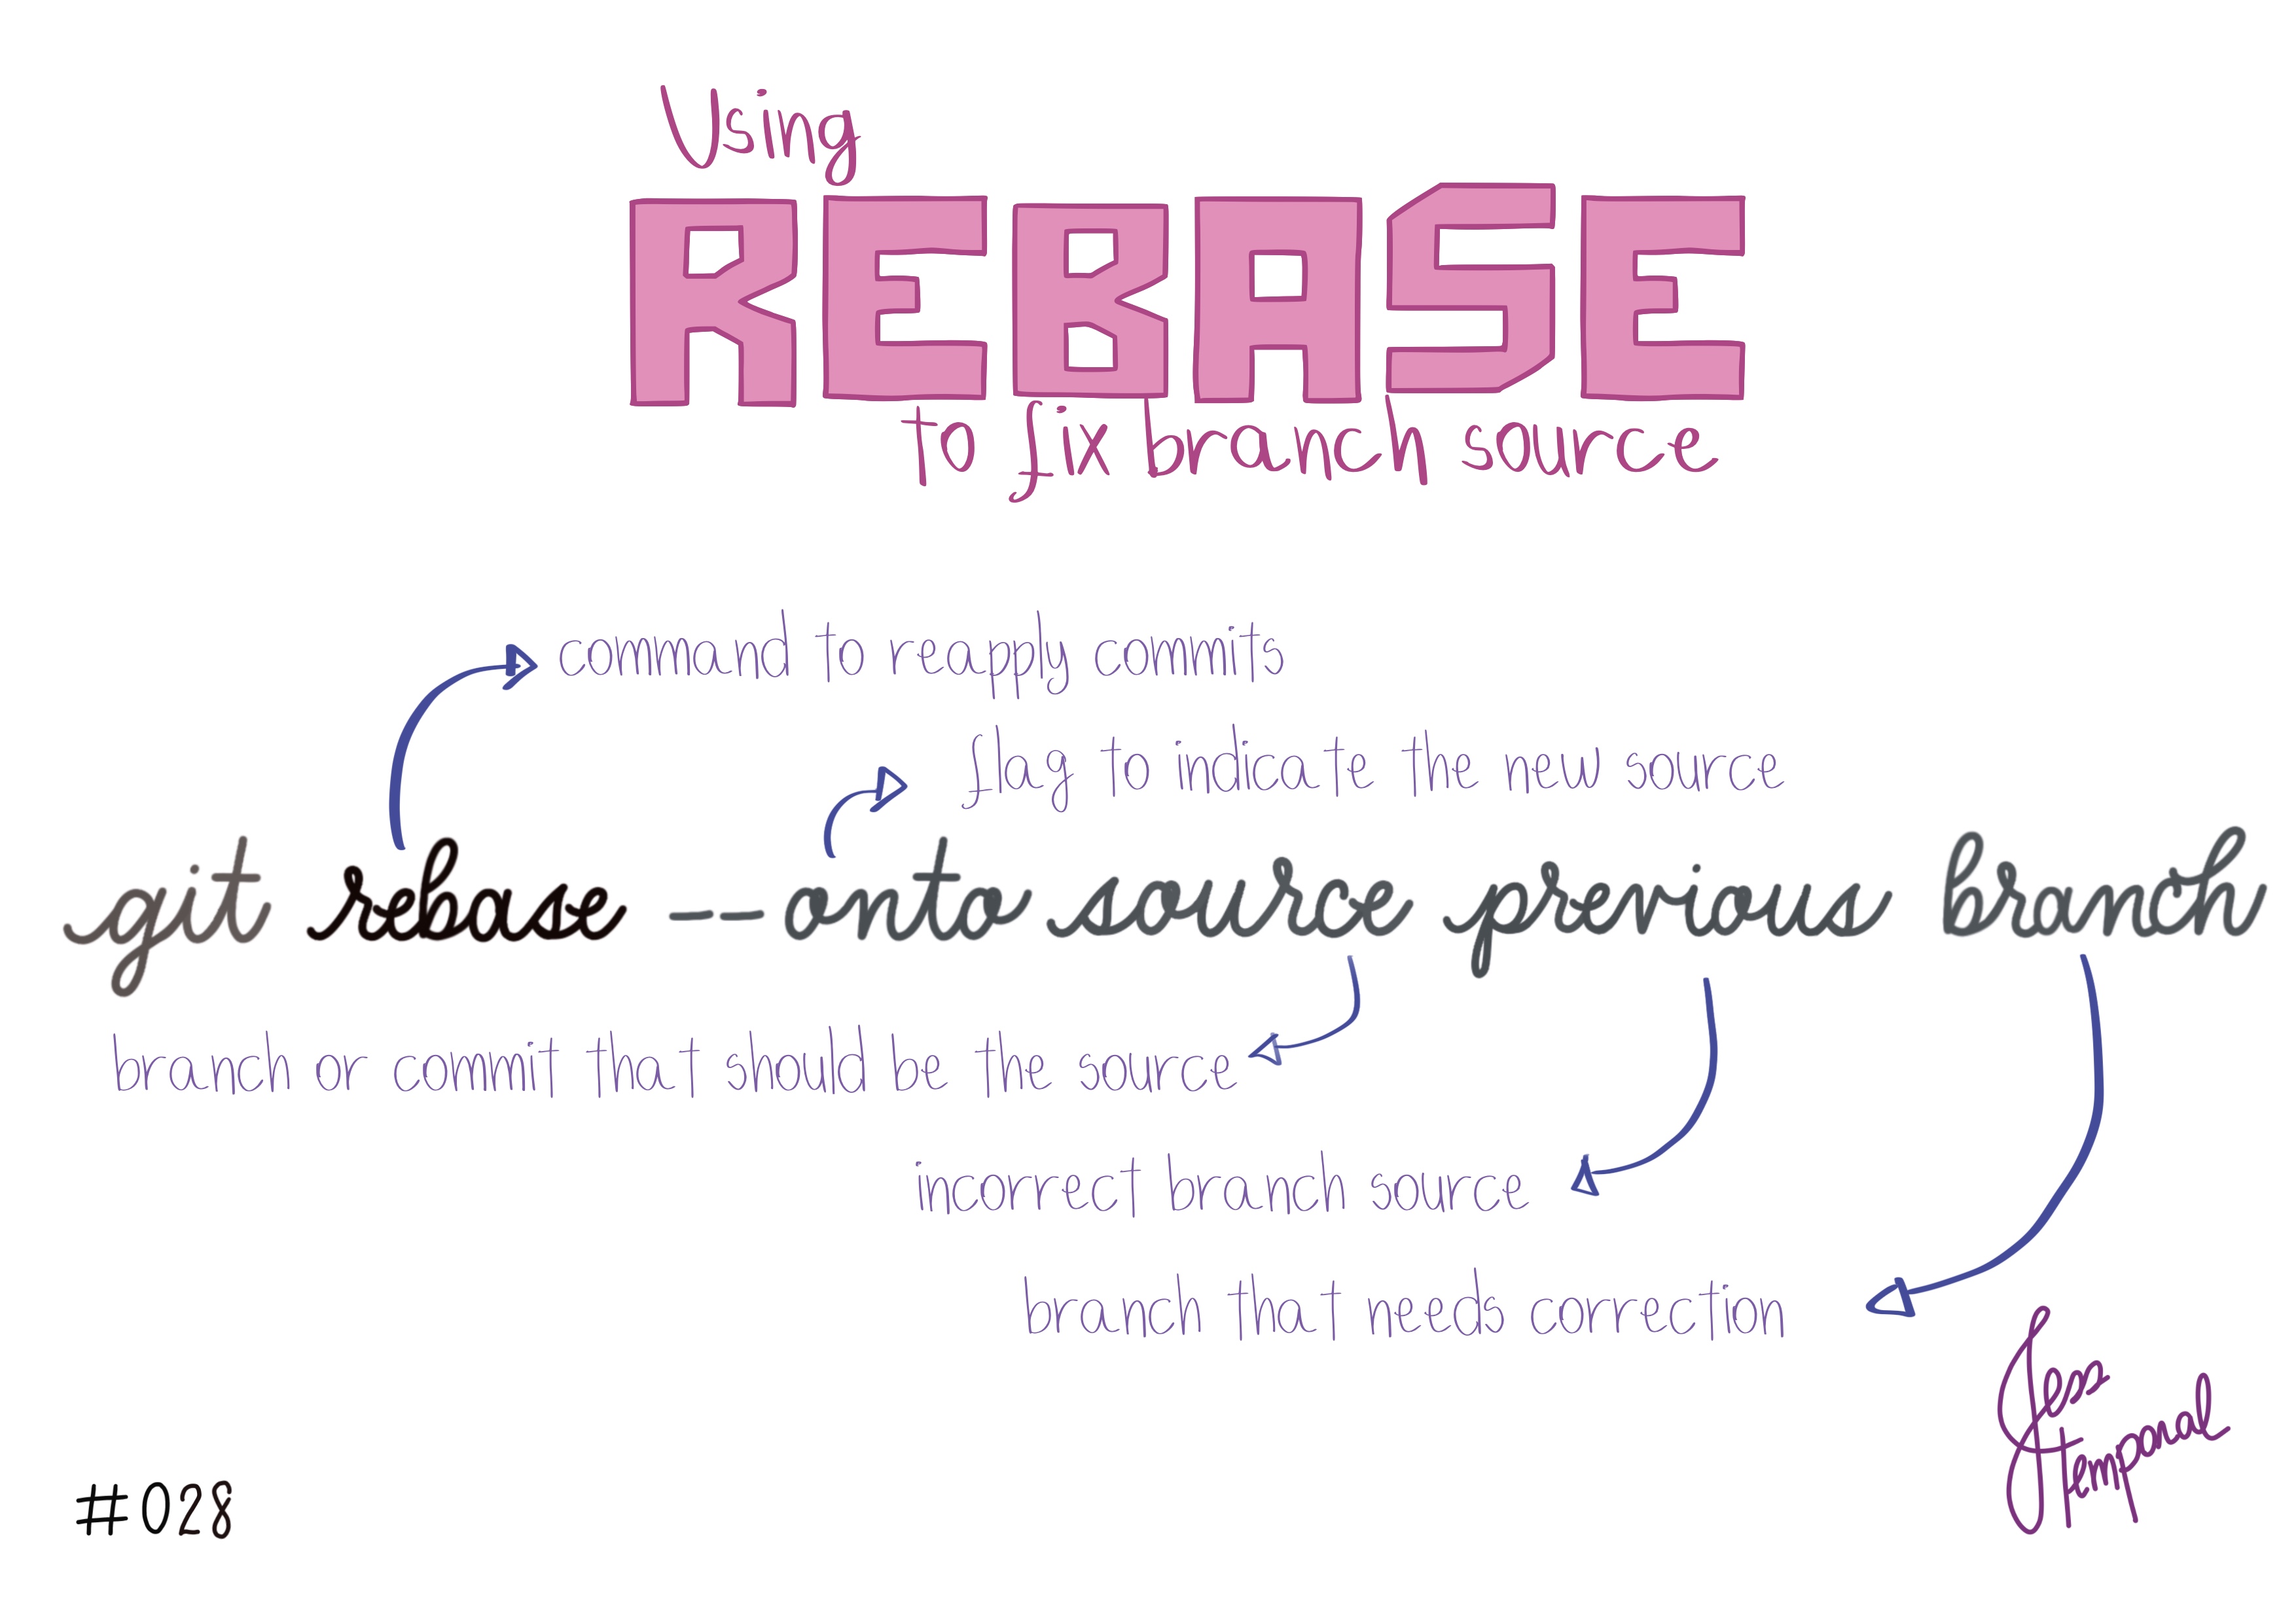 Using
REBASE
to fix branch source
command to reapply commits
flag to indicate the new source
git rebase --onto source previous branch
branch or commit that should be the source
incorrect branch source
branch that needs correction
Jess
temporal
#028